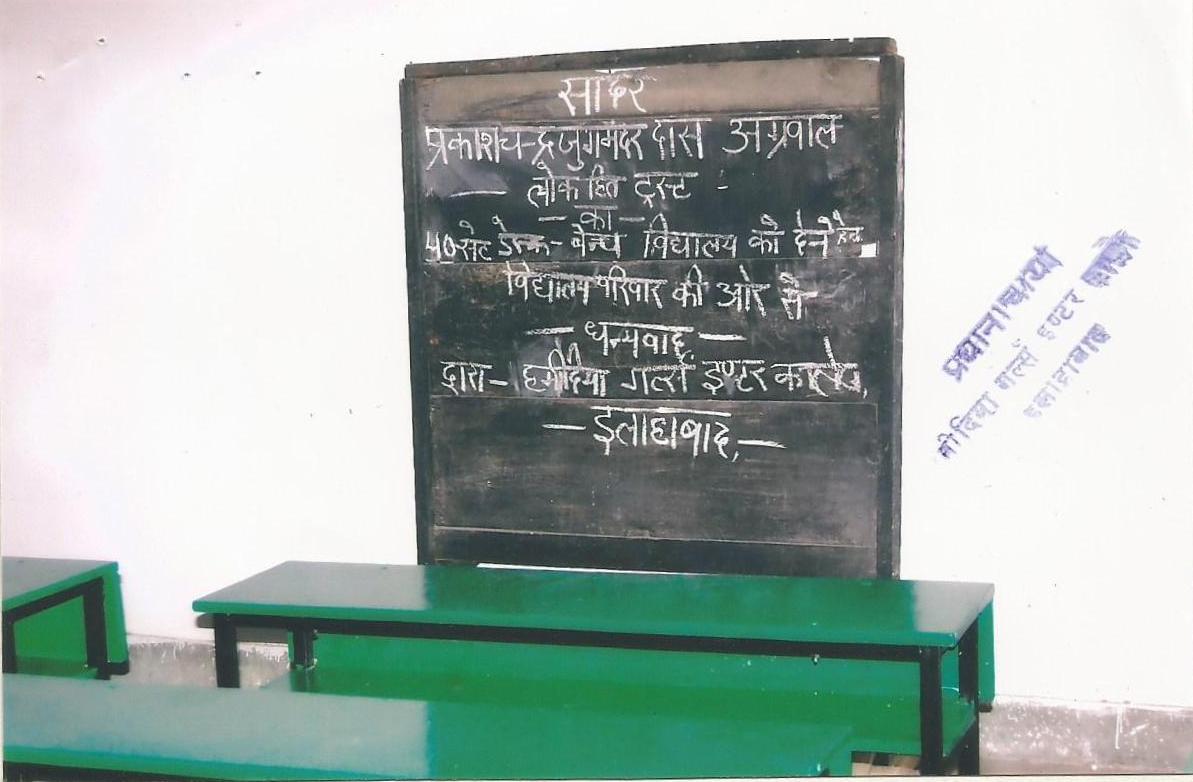 सादर
प्रकाशचन्द्र जुगमंदर दास अग्रवाल
— लोकहित ट्रस्ट -
— का —
40 सेट डेस्क - बेन्च विद्यालय को देने हेतु
विद्यालय परिवार की ओर से
— धन्यवाद, —
द्वारा - हमीदिया गर्ल्स इण्टर कालेज,
— इलाहाबाद, —
प्रधानाचार्या
मीदिया गर्ल्स इण्टर कालेज
इलाहाबाद